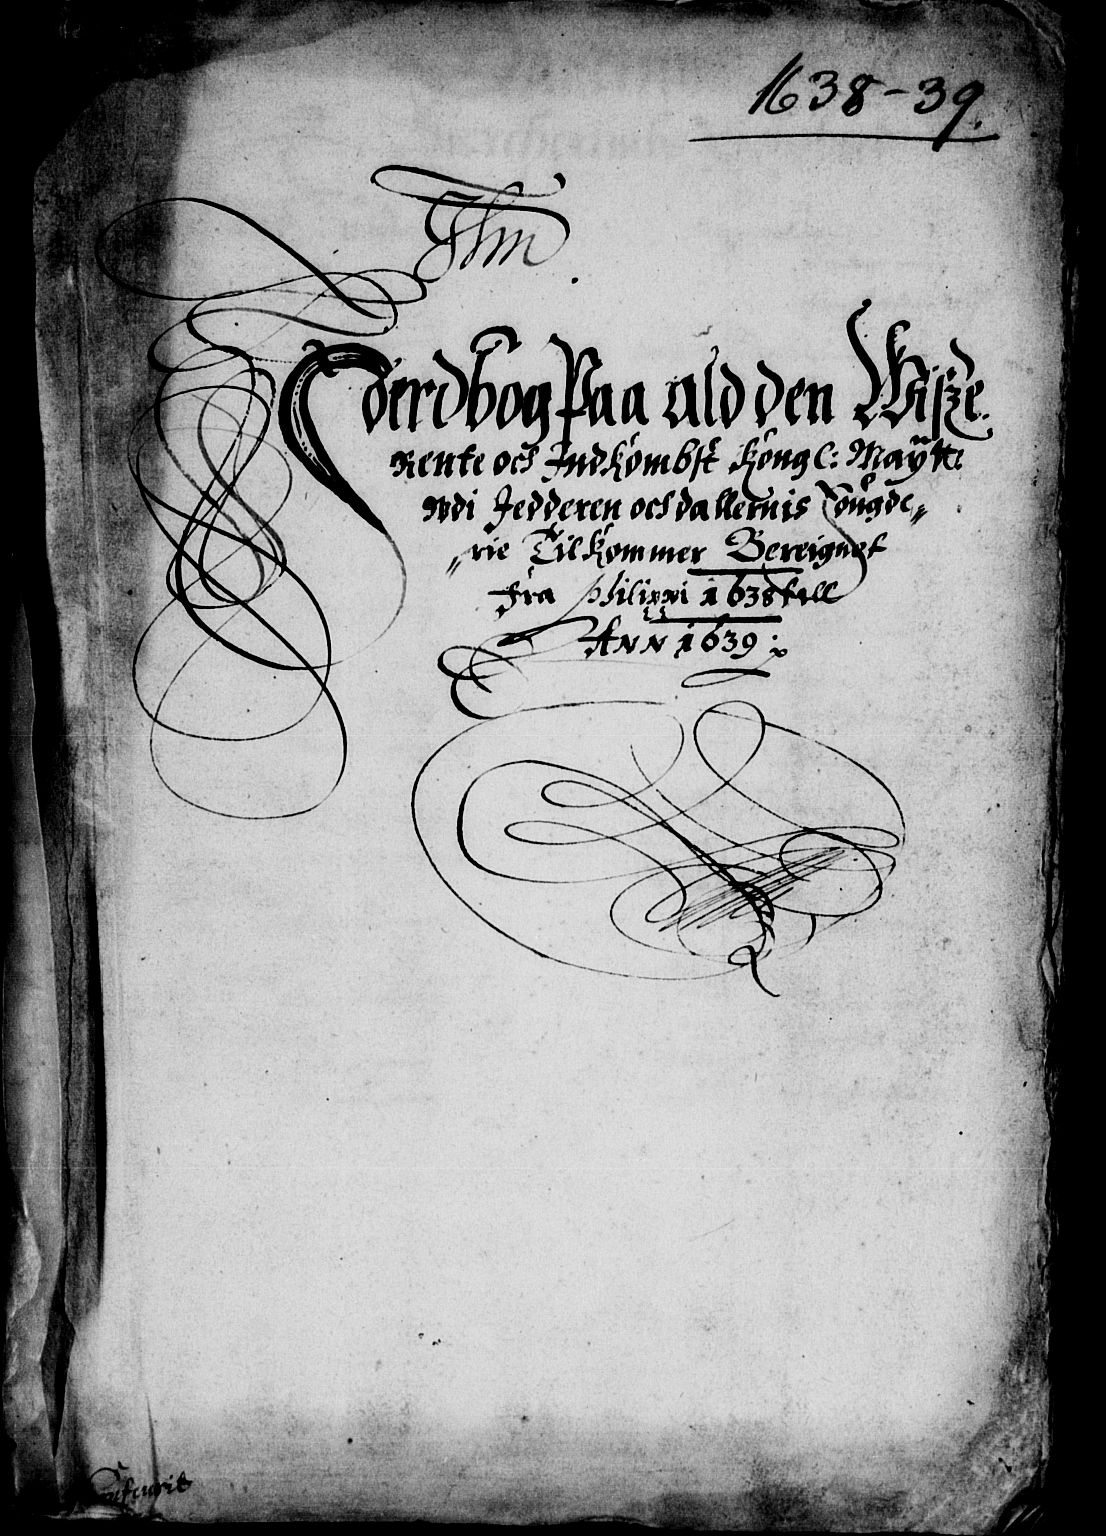 1638-39.
Jorrdbog Paa Ald den Wisze
Rente och Indkombst Kongl: Maÿtt:
Udi Jedderen och dallernis fougde„
„rie Tilkommer Bereignet
fra Philippi 1638 till
Ann 1639: